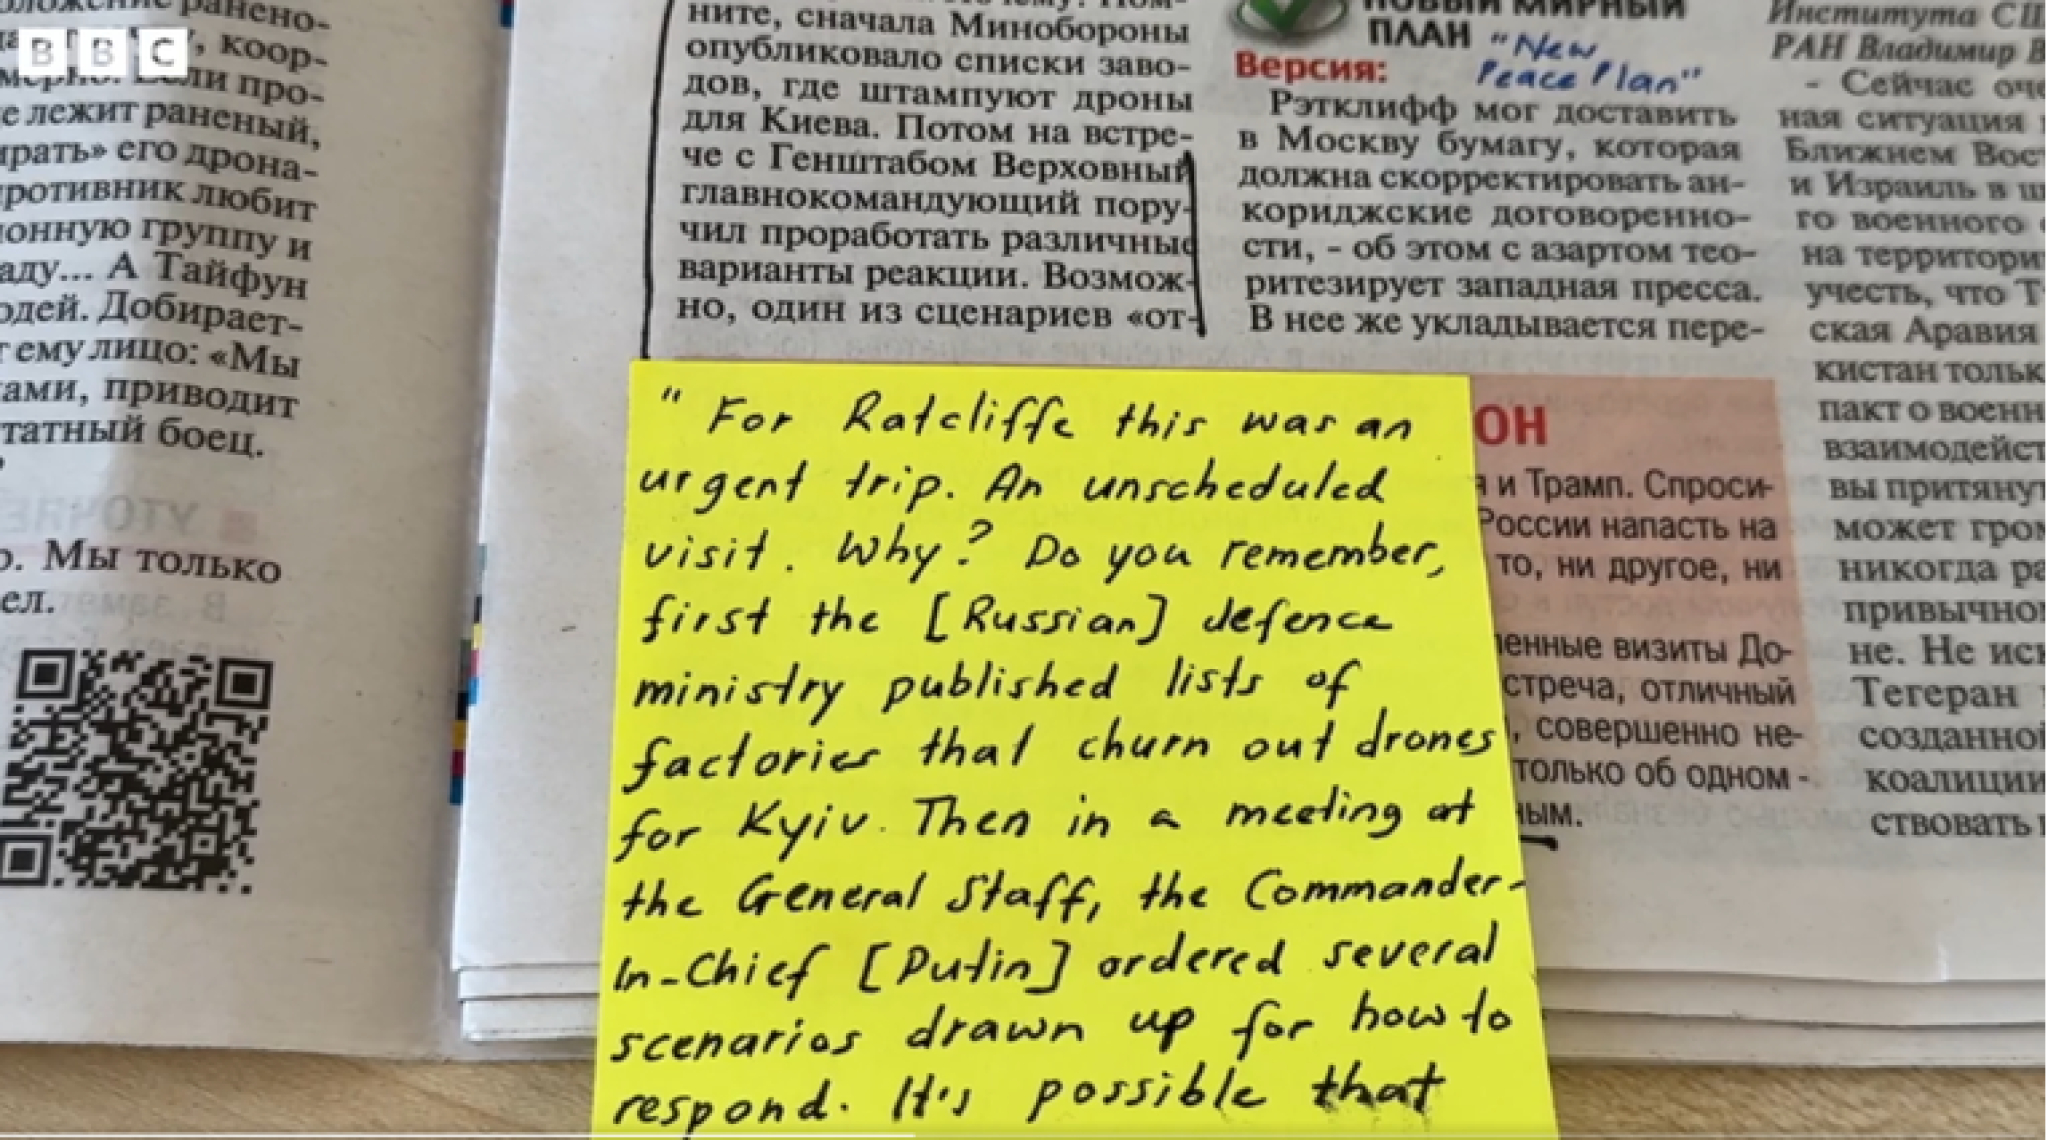 BBC
коор-
ли про-
лежит раненый,
его дрона-
противник любит
группу и
А Тайфун
Добирает-
ему лицо: «Мы
приводит
боец.
УТОЧНЕ
Мы только
ните, сначала Минобороны
опубликовало списки заво-
дов, где штампуют дроны
для Киева. Потом на встре-
че с Генштабом Верховный
главнокомандующий пору-
чил проработать различные
варианты реакции. Возмож-
но, один из сценариев «от-
" For Ratcliffe this was an
urgent trip. An unscheduled
visit. Why? Do you remember,
first the [Russian] defence
ministry published lists of
factories that churn out drones
for Kyiv. Then in a meeting at
the General Staff, the Commander-
In-Chief [Putin] ordered several
scenarios drawn up for how to
respond. It's possible that
НОВЫЙ МИРНЫЙ
ПЛАН "New
Peace Plan"
Версия:
Рэтклифф мог доставить
в Москву бумагу, которая
должна скорректировать ан-
кориджские договоренно-
сти, - об этом с азартом тео-
ритезирует западная пресса.
В нее же укладывается пере-
ОН
и Трамп. Спроси-
России напасть на
то, ни другое, ни
визиты До-
отличный
совершенно не-
только об одном -
Института США
РАН Владимир
- Сейчас
ная ситуация
Ближнем
и Израиль в
го военного
на территории
учесть, что
ская Аравия
кистан только
пакт о
вы
может
никогда
не. Не
Тегеран
созданной
коалиции
ствовать